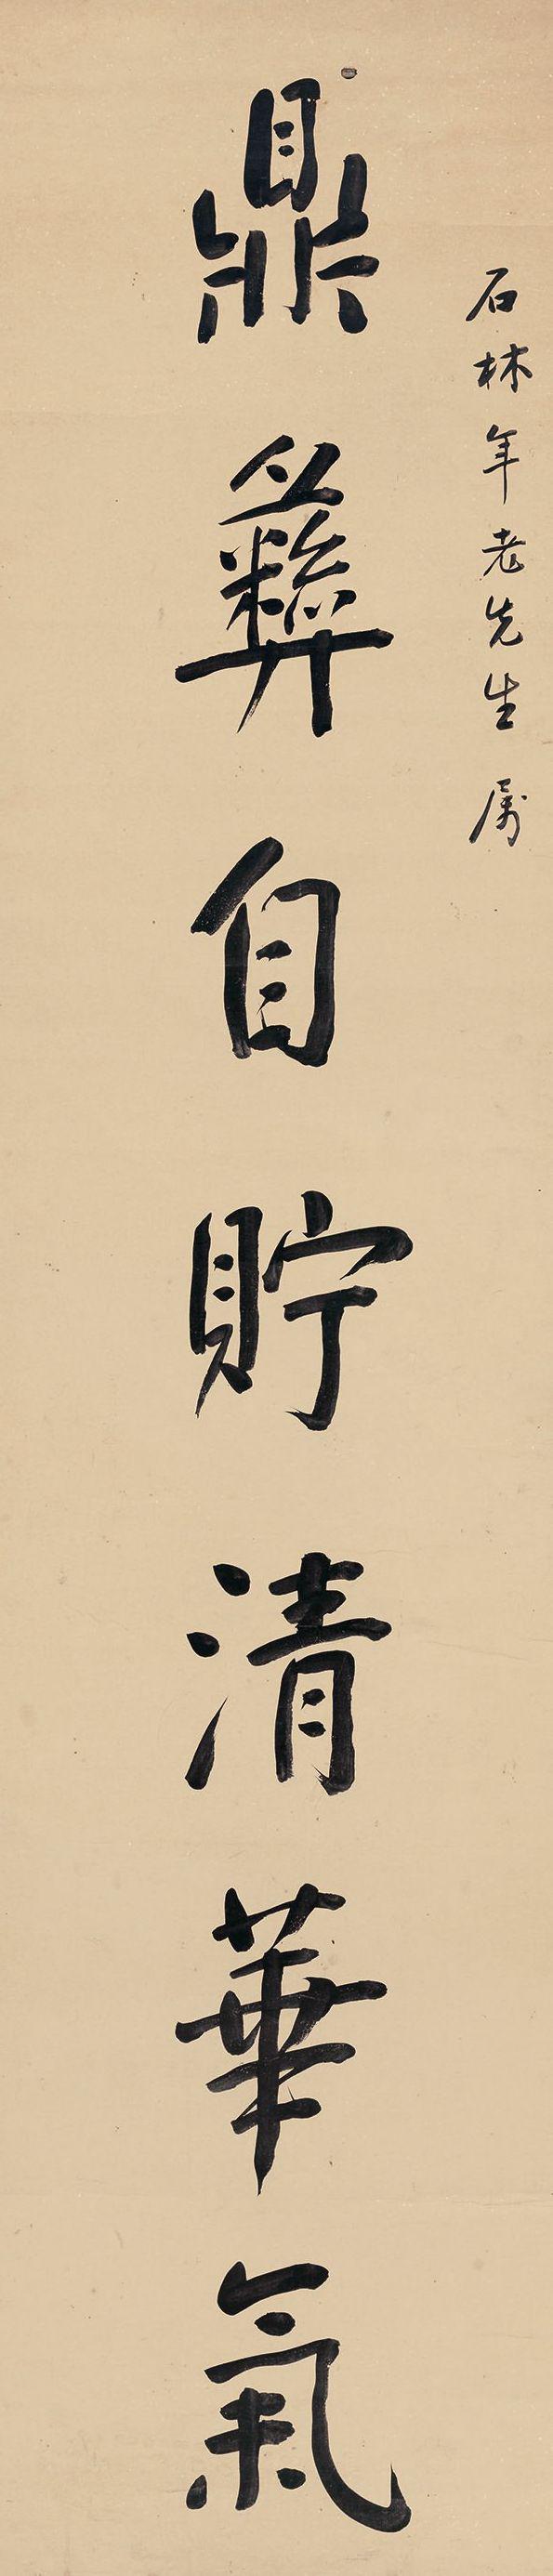 石林年老先生属
鼎彝自貯清華氣